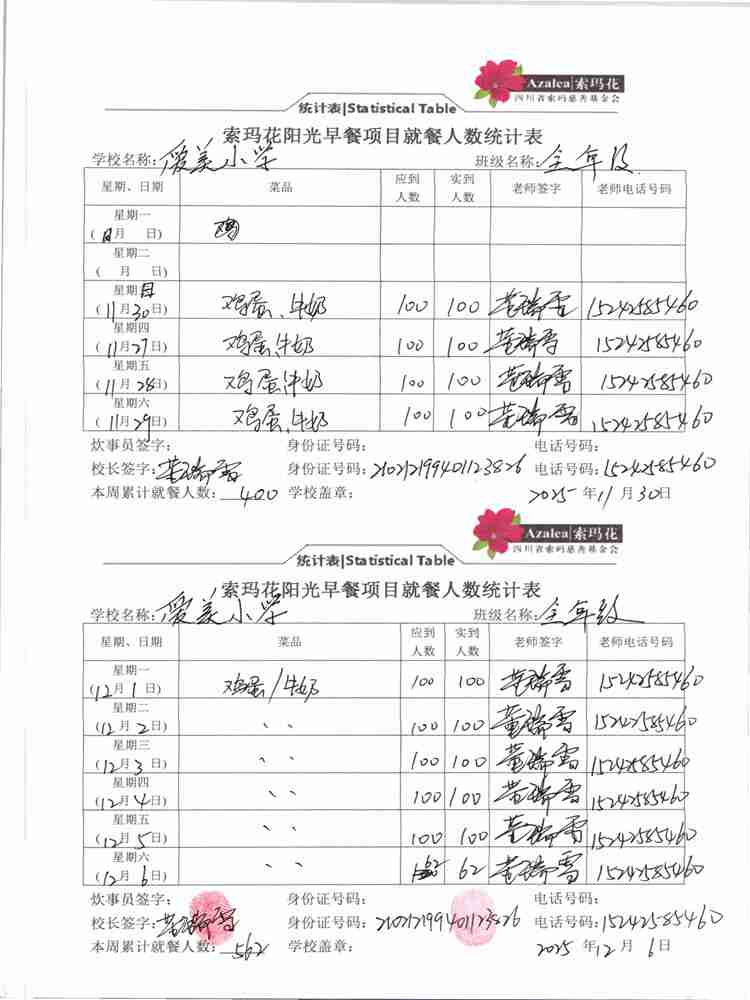 Azalea|索玛花
四川省索玛慈善基金会
统计表|Statistical Table
索玛花阳光早餐项目就餐人数统计表
学校名称:爱美小学 班级名称:全年级
星期、日期 菜品 应到人数 实到人数 老师签字 老师电话号码
星期一
( 月 日) 鸡
星期二
( 月 日)
星期日
(11月30日) 鸡蛋、牛奶 100 100 董瑞雪 15242585460
星期四
(11月27日) 鸡蛋、牛奶 100 100 董瑞雪 15242585460
星期五
(11月28日) 鸡蛋、牛奶 100 100 董瑞雪 15242585460
星期六
(11月29日) 鸡蛋、牛奶 100 100 董瑞雪 15242585460
炊事员签字: 身份证号码: 电话号码:
校长签字:董瑞雪 身份证号码:210212199401123826 电话号码:15242585460
本周累计就餐人数:400 学校盖章: 2025年11月30日
Azalea|索玛花
四川省索玛慈善基金会
统计表|Statistical Table
索玛花阳光早餐项目就餐人数统计表
学校名称:爱美小学 班级名称:全年级
星期、日期 菜品 应到人数 实到人数 老师签字 老师电话号码
星期一
(12月1日) 鸡蛋/牛奶 100 100 董瑞雪 15242585460
星期二
(12月2日) 、、 100 100 董瑞雪 15242585460
星期三
(12月3日) 、、 100 100 董瑞雪 15242585460
星期四
(12月4日) 、、 100 100 董瑞雪 15242585460
星期五
(12月5日) 、、 100 100 董瑞雪 15242585460
星期六
(12月6日) 、、 62 62 董瑞雪 15242585460
炊事员签字: 身份证号码: 电话号码:
校长签字:董瑞雪 身份证号码:210212199401123826 电话号码:15242585460
本周累计就餐人数:562 学校盖章: 2025年12月6日